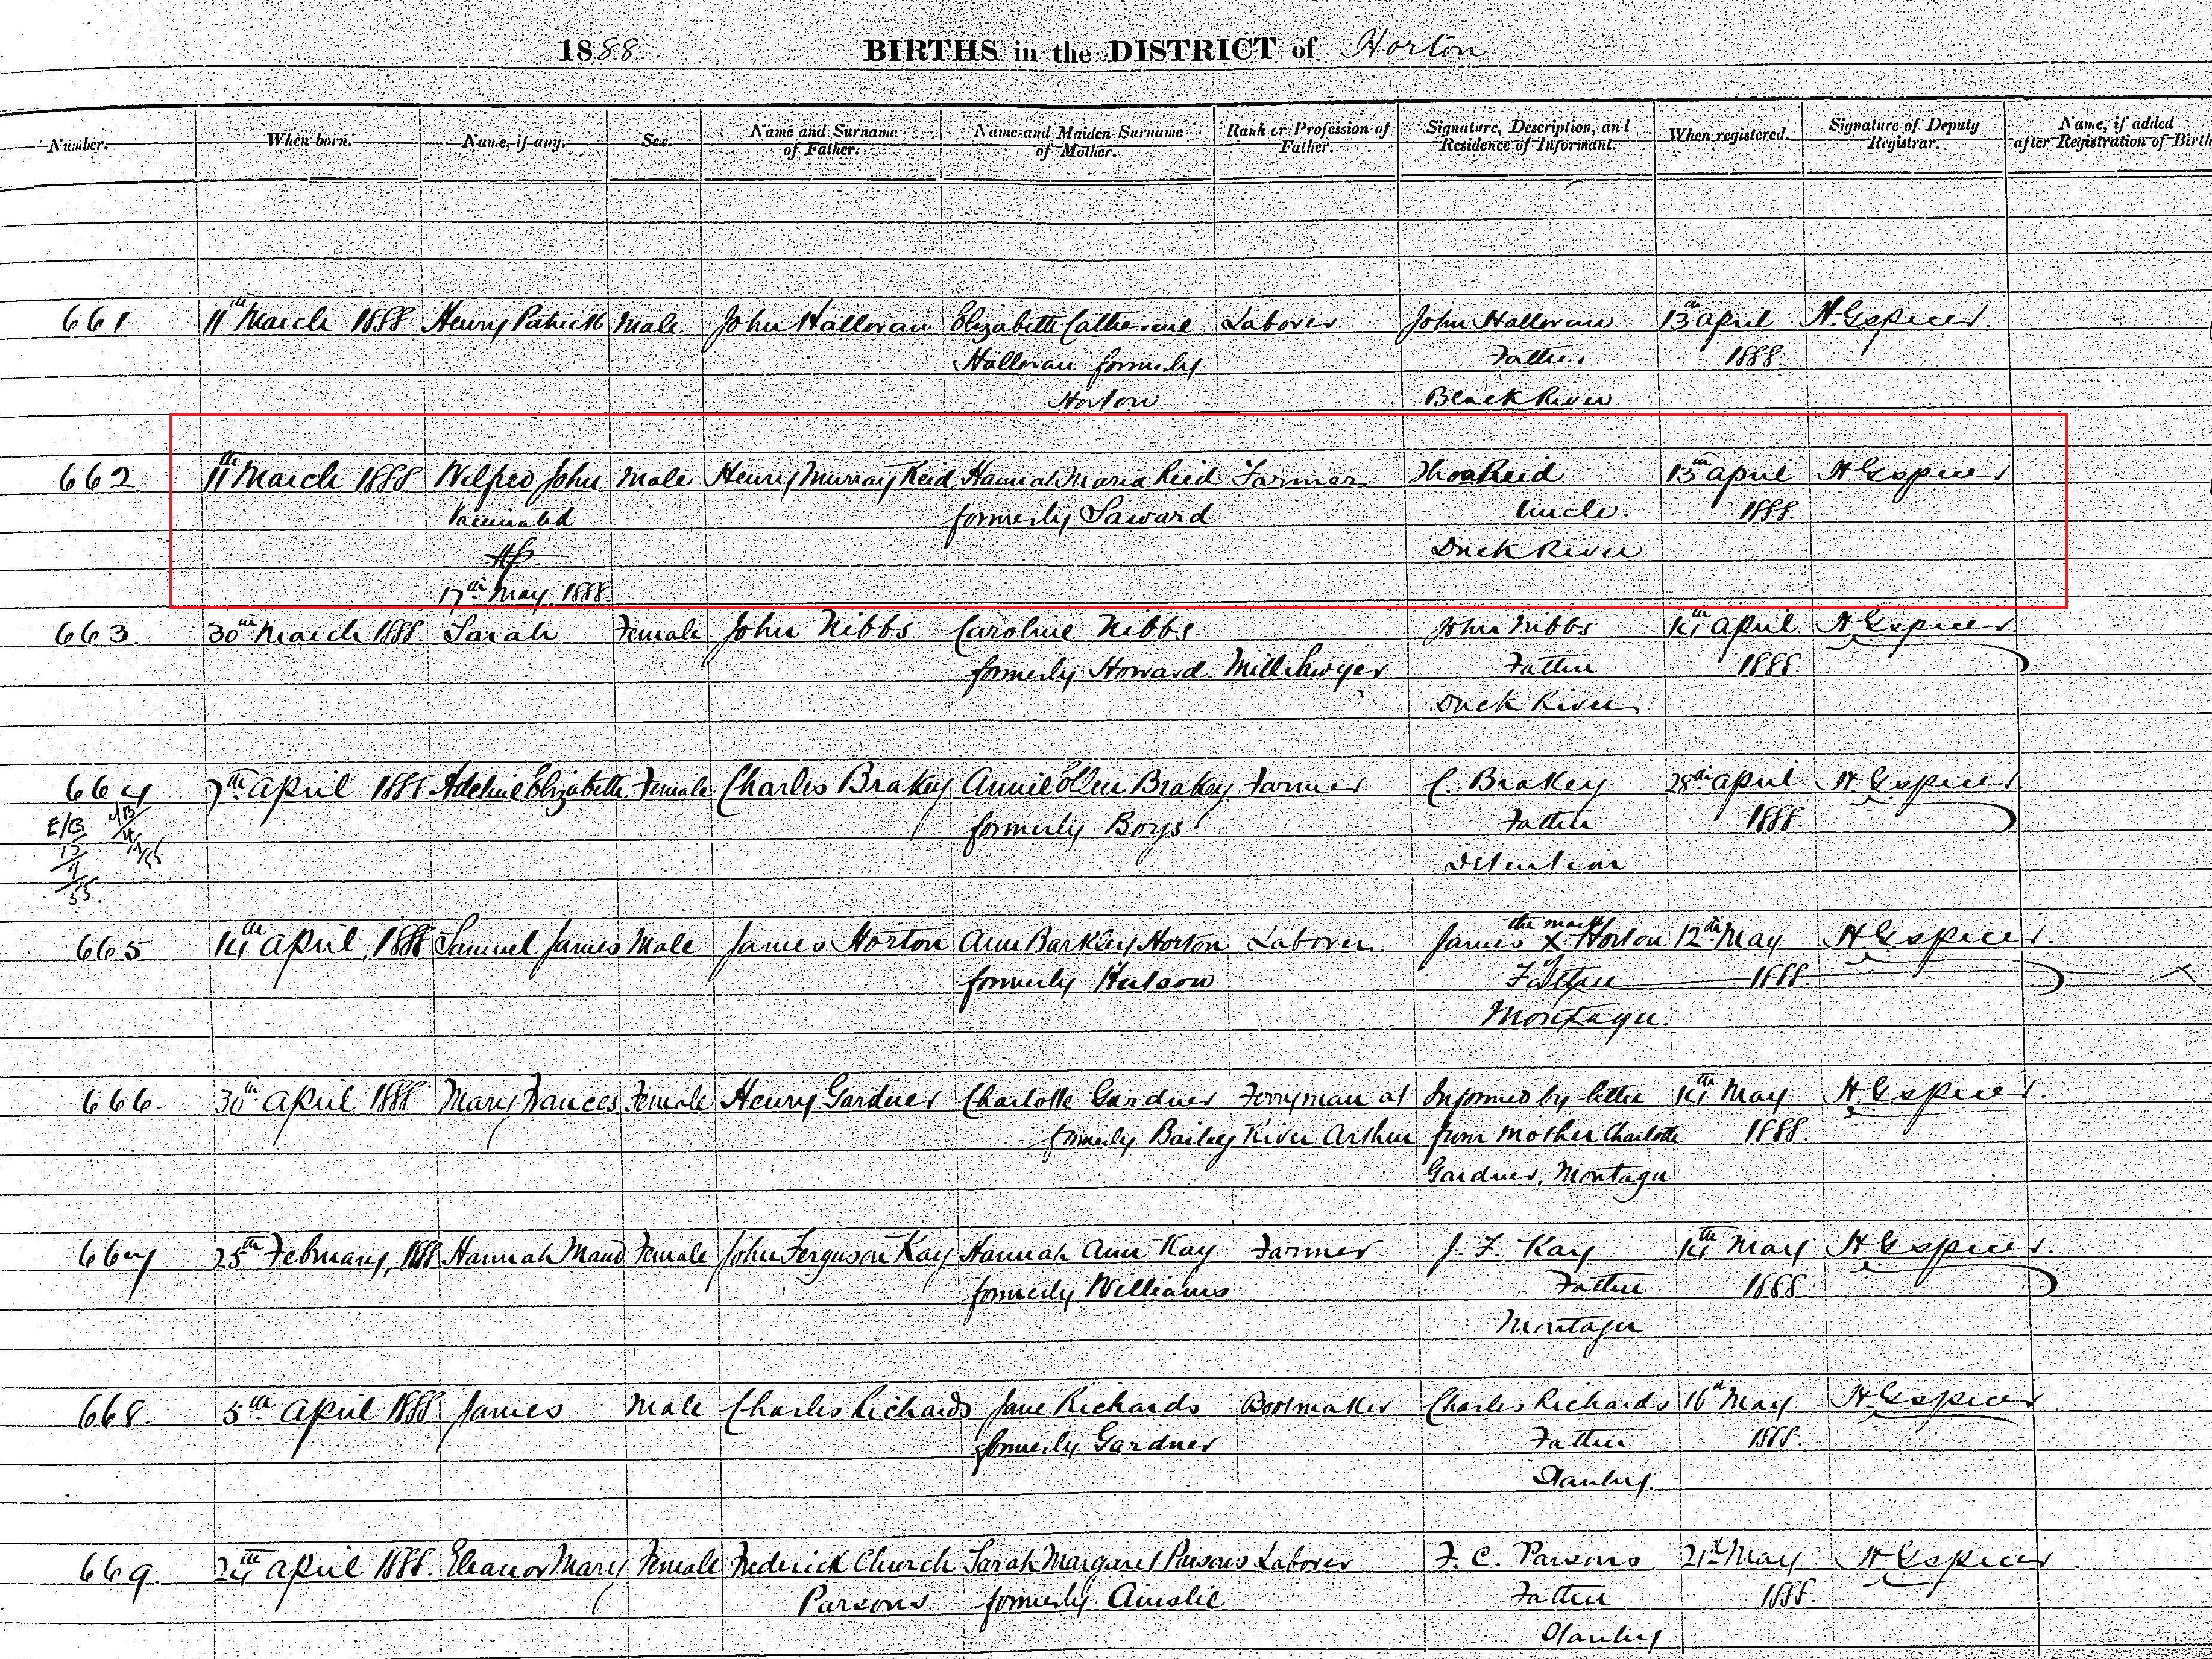 1888. BIRTHS in the DISTRICT of Horton
Number. When born. Name, if any. Sex. Name and Surname of Father. Name and Maiden Surname of Mother. Rank or Profession of Father. Signature, Description, and Residence of Informant. When registered. Signature of Deputy Registrar. Name, if added after Registration of Birth
661 11th March 1888 Henry Patrick Male John Halloran Elizabeth Catherine Laborer John Halloran 13th April H. G. Spicer.
Halloran formerly Father 1888.
Horton Black River
662 11th March 1888 Wilfred John Male Henry Murray Reid Hannah Maria Reid Farmer Thos Reid 13th April H G Spicer
Vaccinated formerly Saward Uncle. 1888.
Duck River
17th May 1888.
663. 30th March 1888. Sarah Female John Nibbs Caroline Nibbs John Nibbs 14th April H G Spicer
formerly Howard Mill Sawyer Father 1888.
Duck River
664 7th April 1888 Adeline Elizabeth Female Charles Brakey Annie Ellen Brakey Farmer C. Brakey 28th April H G Spicer
E/B formerly Boys Father 1888.
Detention
665 14th April, 1888 Samuel James Male James Horton Ann Barkley Horton Laborer James the mark X of Horton 12th May H G Spicer.
formerly Hutson Father 1888.
Montagu.
666. 30th April 1888 Mary Frances Female Henry Gardner Charlotte Gardner Ferryman at Informed by letter 14th May H G Spicer.
formerly Bailey River Arthur from Mother Charlotte 1888.
Gardner, Montagu
667 25th February, 1888 Hannah Maud Female John Ferguson Kay Hannah Ann Kay Farmer J. F. Kay 14th May H G Spicer.
formerly Williams Father 1888.
Montagu
668. 5th April 1888 James Male Charles Richards Jane Richards Bootmaker Charles Richards 16th May H G Spicer
formerly Gardner Father 1888.
Stanley.
669. 24th April 1888. Eleanor Mary Female Frederick Church Sarah Margaret Parsons Laborer F. C. Parsons. 21st May H G Spicer
Parsons formerly Ainslie Father 1888.
Stanley